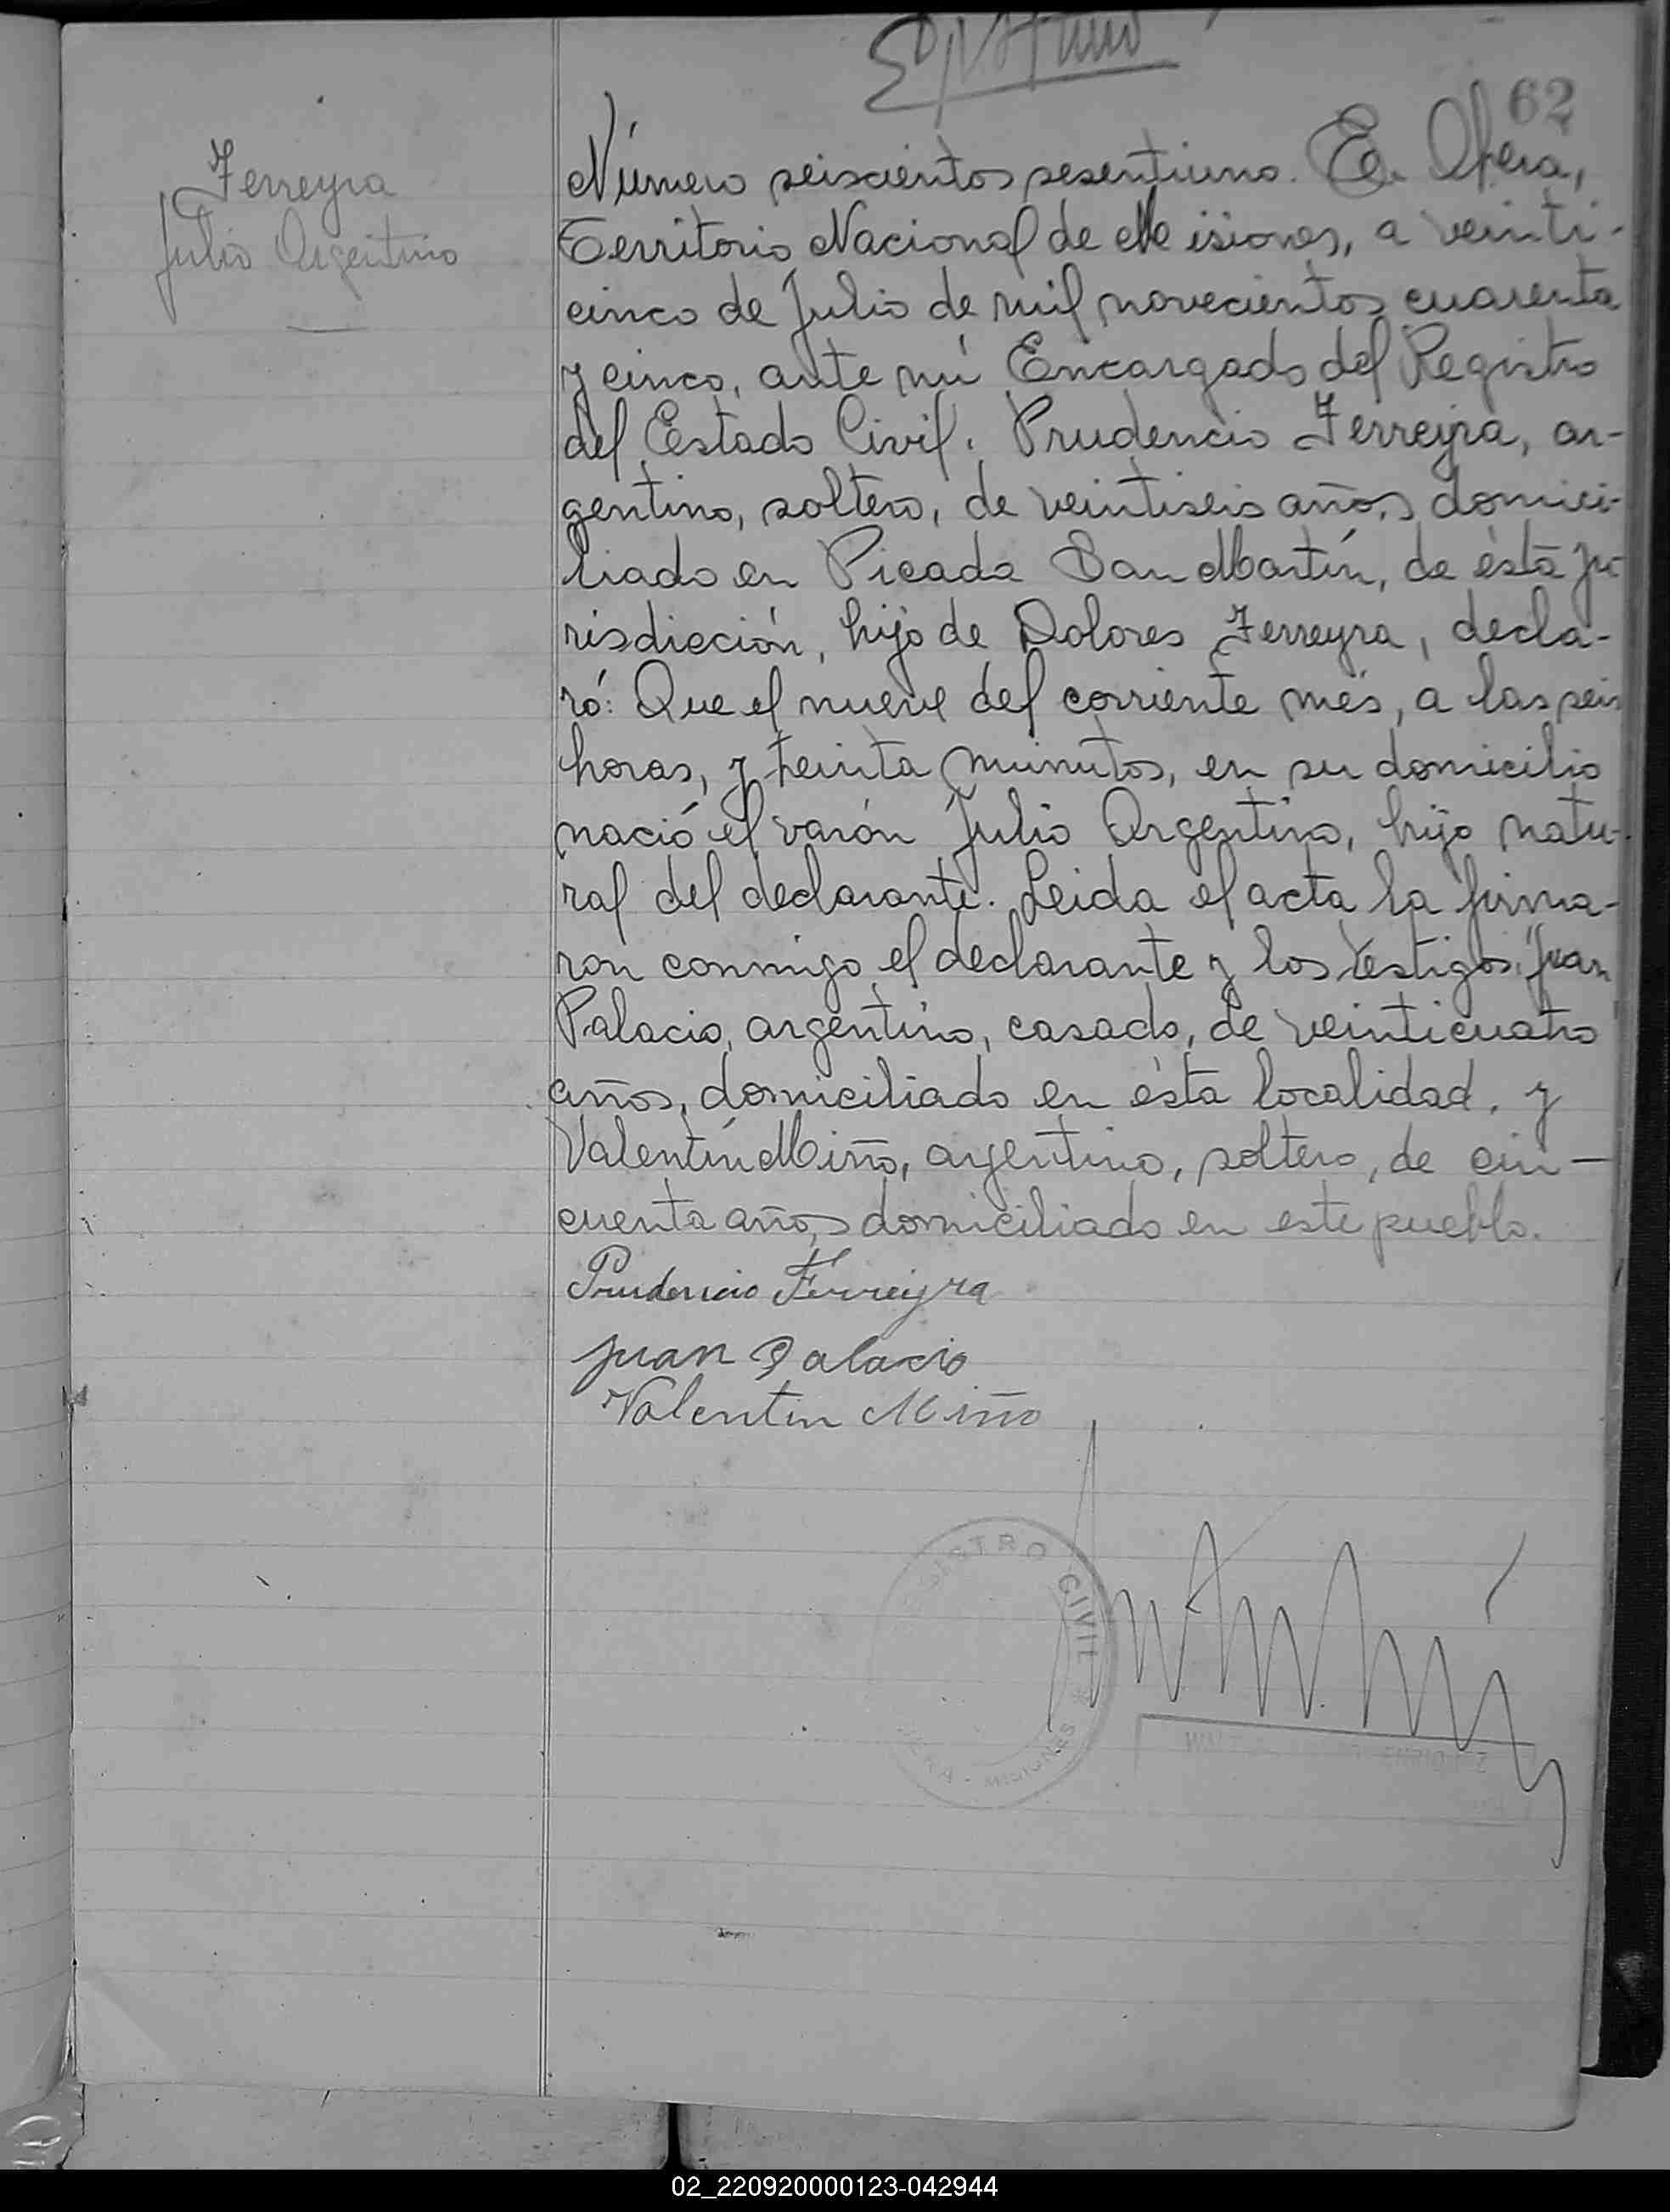 62
Ferreyra
Julio Argentino
Número seiscientos sesentiuno. En Opera,
Territorio Nacional de Misiones, a veinti-
cinco de Julio de mil novecientos cuarenta
y cinco, ante mí Encargado del Registro
del Estado Civil. Prudencio Ferreyra, ar-
gentino, soltero, de veintiseis años, domici-
liado en Picada San Martín, de ésta ju
risdicción, hijo de Dolores Ferreyra, decla-
ró: Que el nueve del corriente més, a las seis
horas, y treinta minutos, en su domicilio
nació el varón Julio Argentino, hijo natu-
ral del declarante. Leida el acta la firma-
ron conmigo el declarante y los testigos: Juan
Palacio, argentino, casado, de veinticuatro
años, domiciliado en ésta localidad, y
Valentín Miño, argentino, soltero, de cin-
cuenta años, domiciliado en este pueblo.
Prudencio Ferreyra
Juan Palacio
Valentin Miño
REGISTRO CIVIL
OBERA - MISIONES
02_220920000123-042944